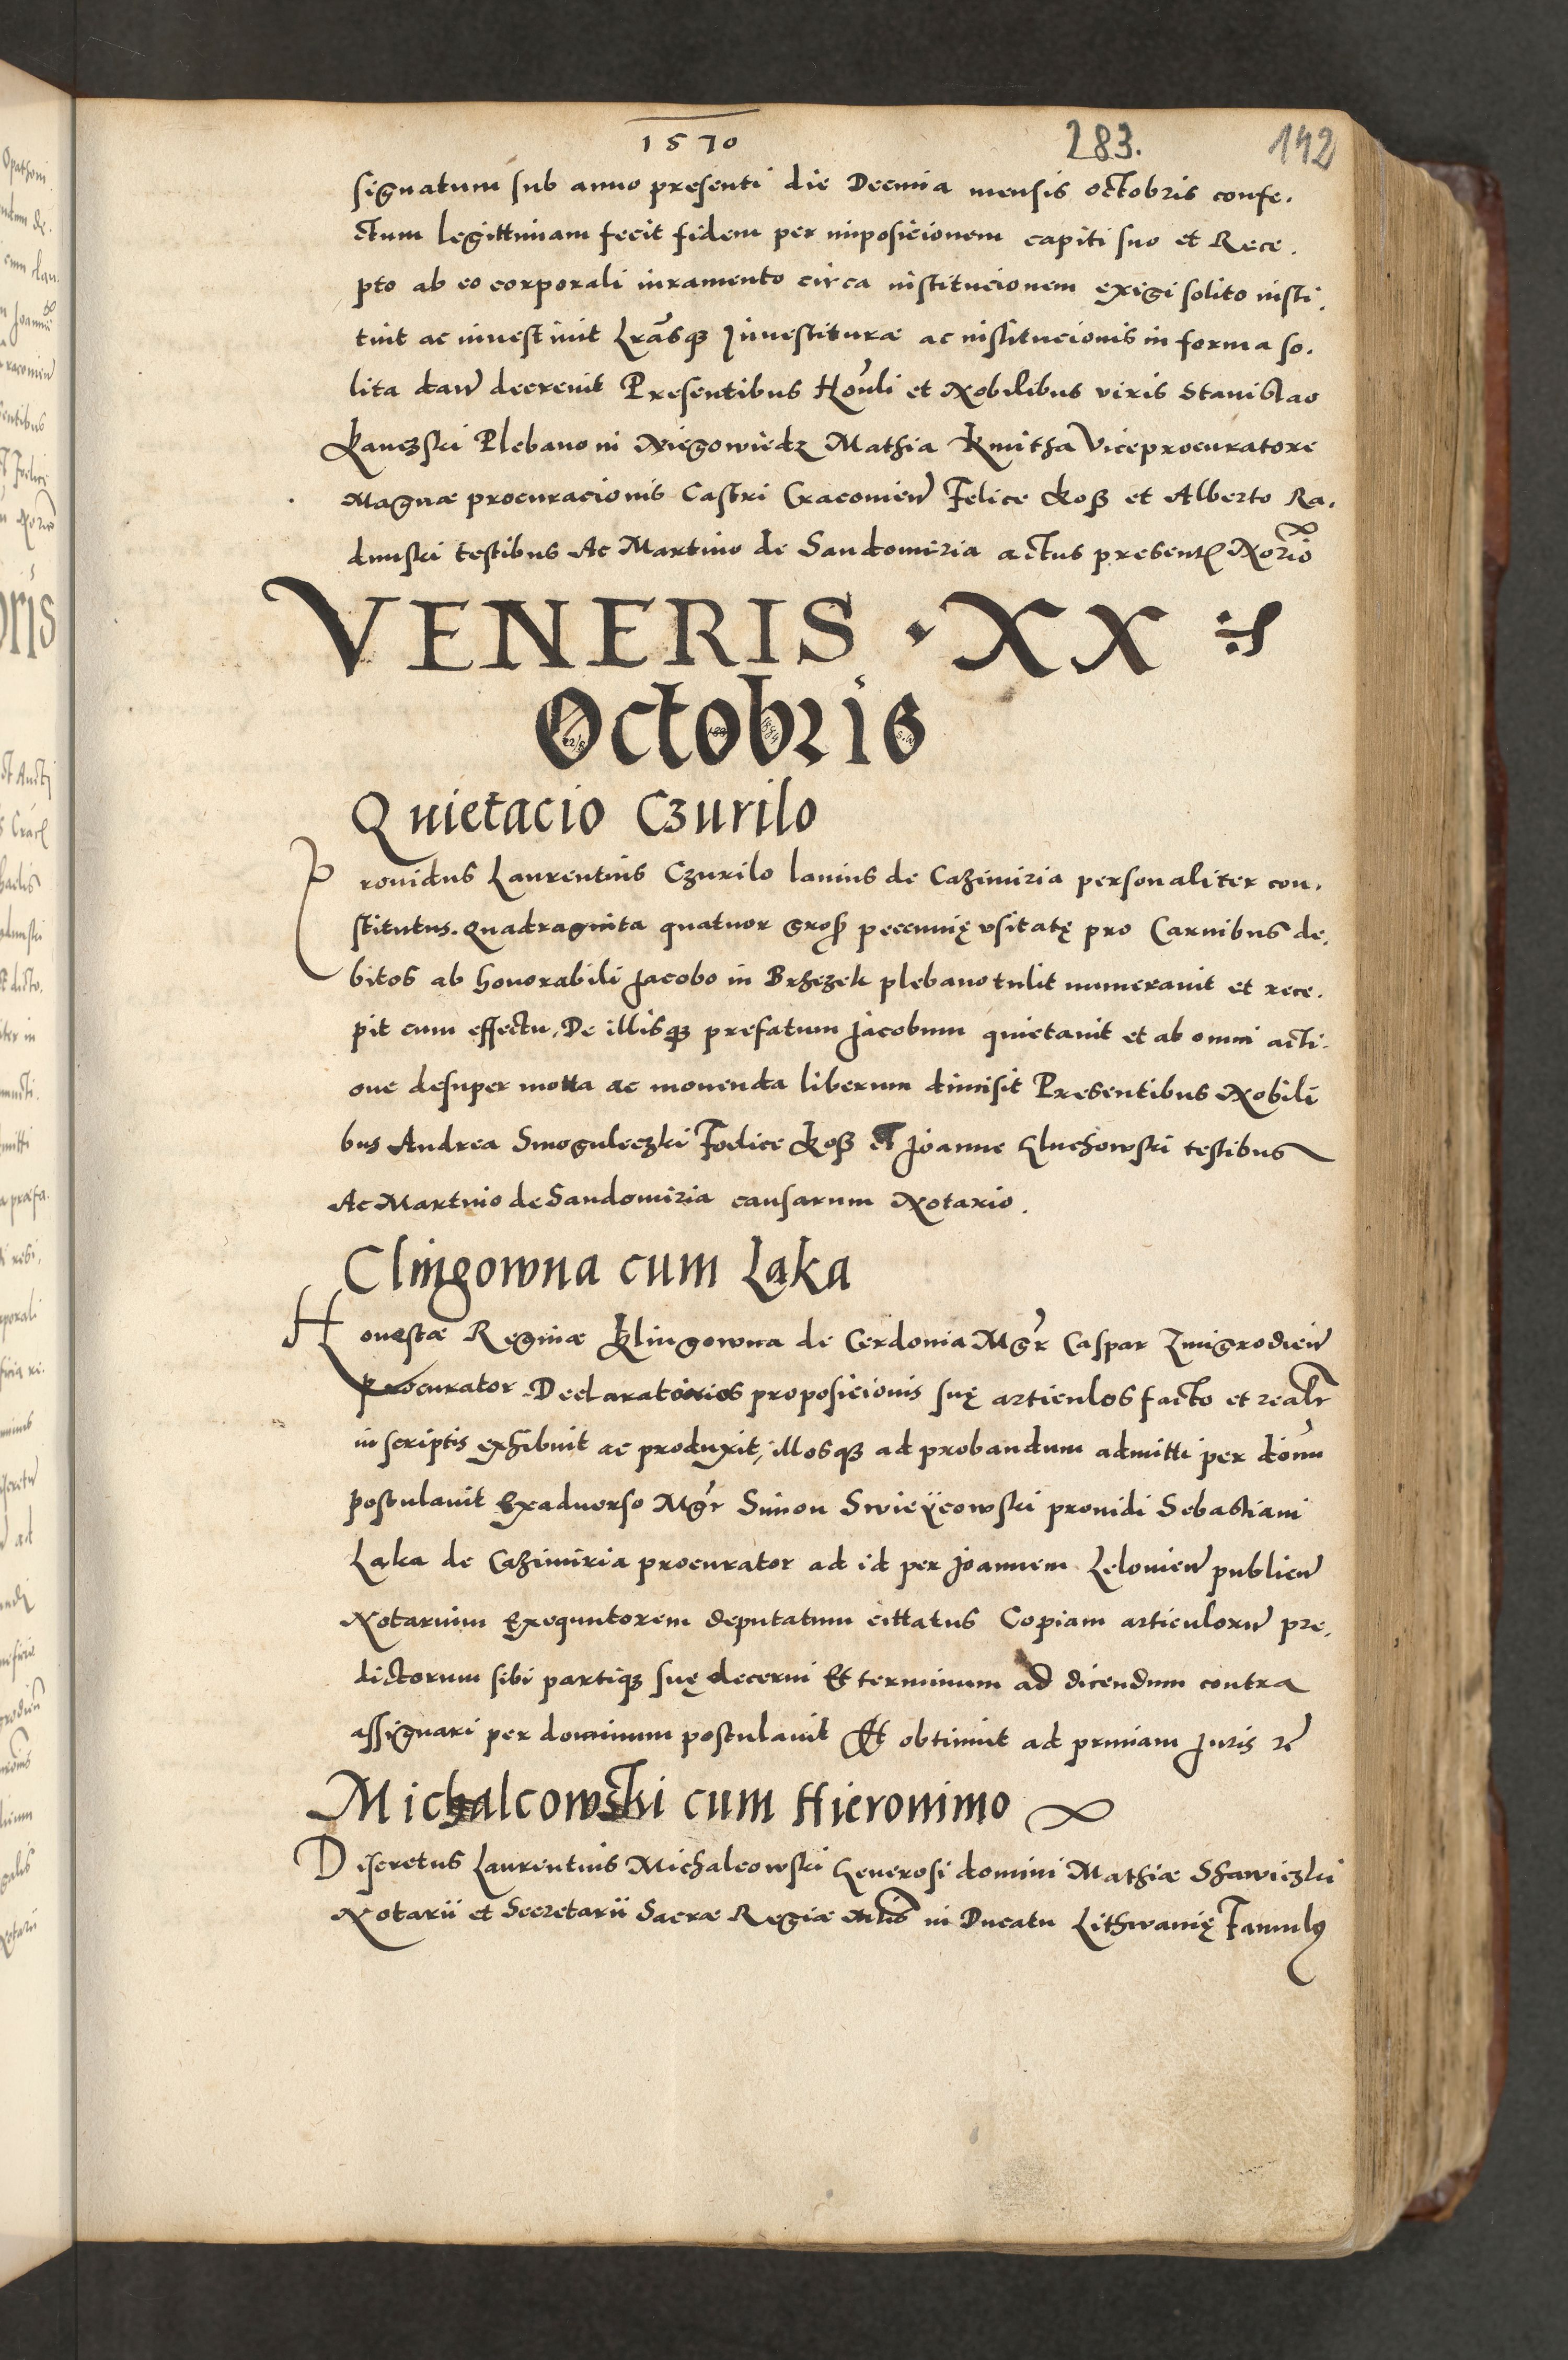 1570 283. 142
signatum sub anno presenti die Decima mensis octobris confe.
ctum legittimam fecit fidem per imposicionem capiti suo et Rece.
pto ab eo corporali iuramento circa institucionem exigi solito insti.
tuit ac inuestiuit Lrãsq3 Inuestiturae ac institucionis in forma so.
lita dari decreuit Presentibus Honli et Nobilibus viris Stanislao
Kanczski Plebano in Niegowiedz Mathia Kmitha Viceprocuratore
Magnae procuracionis Castri Cracovien Felice koß et Alberto Ra.
dunski testibus Ac Martino de Sandomiria actus present Norio
VENERIS · XX
Octobris
Quietacio Czurilo
Prouidus Laurentius Czurilo lanius de Cazimiria personaliter con.
stitutus. Quadraginta quatuor groß pecunię vsitatę pro Carnibus de.
bitos ab honorabili Jacobo in Brzezek plebano tulit numerauit et rece.
pit cum effectu, De illisq3 prefatum Jacobum quietauit et ab omni acti.
one desuper motta ac mouenda liberum dimisit Presentibus Nobili
bus Andrea Smoguleczki Foelice koß et Joanne Gluchowski testibus
Ac Martino de Sandomiria causarum Notario.
Clingowna cum Laka
Honestae Reginae Klingowna de Cerdonia Mgr Caspar Zmigrodien
Procurator Declaratorios proposicionis suę articulos facto et realr
in scriptis exhibuit ac produxit, illosq3 ad probandum admitti per donu
postulauit Exaduerso Mgr Simon Swieÿcowski prouidi Sebastiani
Laka de Cazimiria procurator ad id per Joannem Lelouien publicu
Notarium Exequutorem deputatum cittatus Copiam articuloru pre.
dictorum sibi partiq3 suę decerni Et terminum ad dicendum contra
assignari per dominum postulauit Et obtinuit ad primam Juris re
Michalcowski cum Hieronimo
Discretus Laurentius Michalcowski Generosi domini Mathiae Shawiczki
Notarii et Secretarii Sacrae Regiae Mtis in Ducatu Lithwanię Famulus